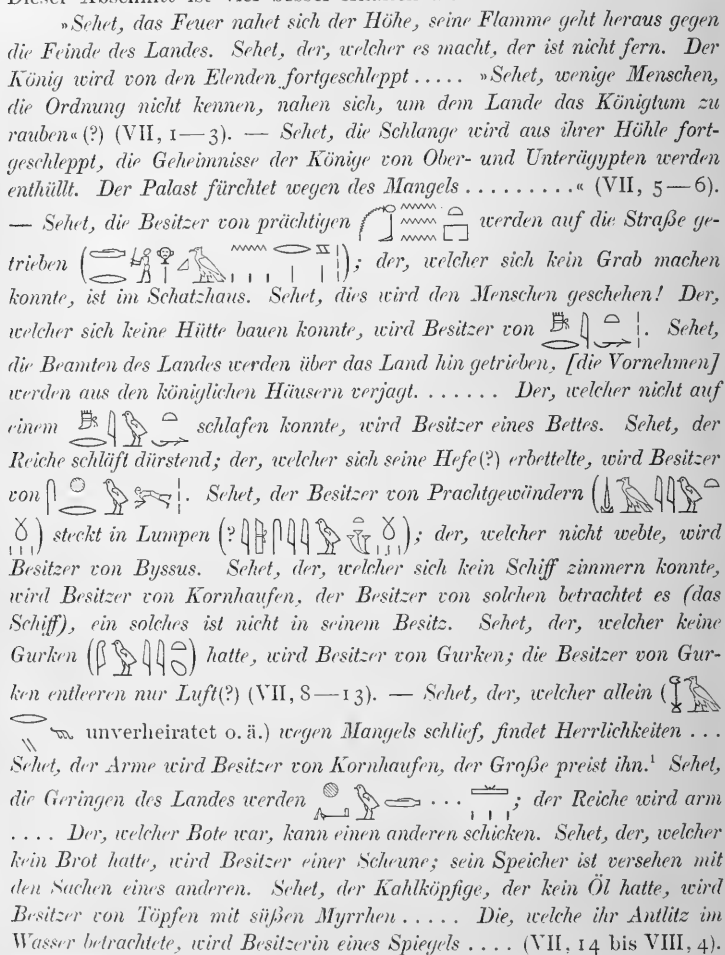 »Sehet, das Feuer nahet sich der Höhe, seine Flamme geht heraus gegen
die Feinde des Landes. Sehet, der, welcher es macht, der ist nicht fern. Der
König wird von den Elenden fortgeschleppt ..... »Sehet, wenige Menschen,
die Ordnung nicht kennen, nahen sich, um dem Lande das Königtum zu
rauben« (?) (VII, 1—3). — Sehet, die Schlange wird aus ihrer Höhle fort-
geschleppt, die Geheimnisse der Könige von Ober- und Unterägypten werden
enthüllt. Der Palast fürchtet wegen des Mangels .........« (VII, 5—6).
— Sehet, die Besitzer von prächtigen werden auf die Straße ge-
trieben ( ); der, welcher sich kein Grab machen
konnte, ist im Schatzhaus. Sehet, dies wird den Menschen geschehen! Der,
welcher sich keine Hütte bauen konnte, wird Besitzer von . Sehet,
die Beamten des Landes werden über das Land hin getrieben, [die Vornehmen]
werden aus den königlichen Häusern verjagt. ...... Der, welcher nicht auf
einem schlafen konnte, wird Besitzer eines Bettes. Sehet, der
Reiche schläft dürstend; der, welcher sich seine Hefe(?) erbettelte, wird Besitzer
von . Sehet, der Besitzer von Prachtgewändern (
) steckt in Lumpen (? ); der, welcher nicht webte, wird
Besitzer von Byssus. Sehet, der, welcher sich kein Schiff zimmern konnte,
wird Besitzer von Kornhaufen, der Besitzer von solchen betrachtet es (das
Schiff), ein solches ist nicht in seinem Besitz. Sehet, der, welcher keine
Gurken ( ) hatte, wird Besitzer von Gurken; die Besitzer von Gur-
ken entleeren nur Luft(?) (VII, 8—13). — Sehet, der, welcher allein (
unverheiratet o. ä.) wegen Mangels schlief, findet Herrlichkeiten ...
Sehet, der Arme wird Besitzer von Kornhaufen, der Große preist ihn.¹ Sehet,
die Geringen des Landes werden ... ; der Reiche wird arm
.... Der, welcher Bote war, kann einen anderen schicken. Sehet, der, welcher
kein Brot hatte, wird Besitzer einer Scheune; sein Speicher ist versehen mit
den Sachen eines anderen. Sehet, der Kahlköpfige, der kein Öl hatte, wird
Besitzer von Töpfen mit süßen Myrrhen ..... Die, welche ihr Antlitz im
Wasser betrachtete, wird Besitzerin eines Spiegels .... (VII, 14 bis VIII, 4).